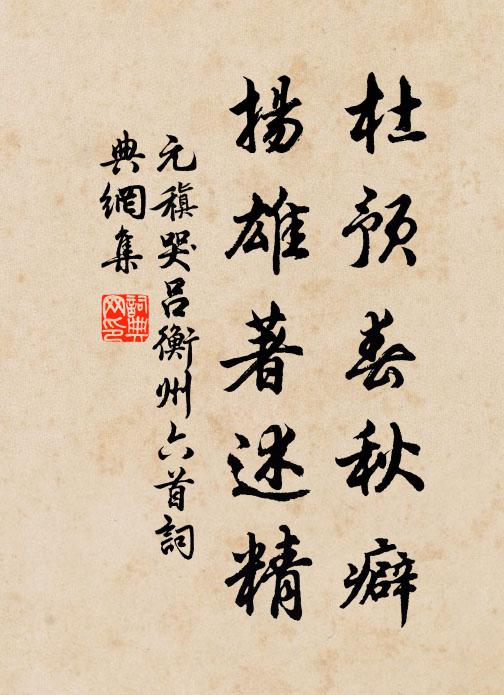 杜預春秋癖
揚雄著述精
元稹哭呂衡州六首詞
典網集
詞典網印